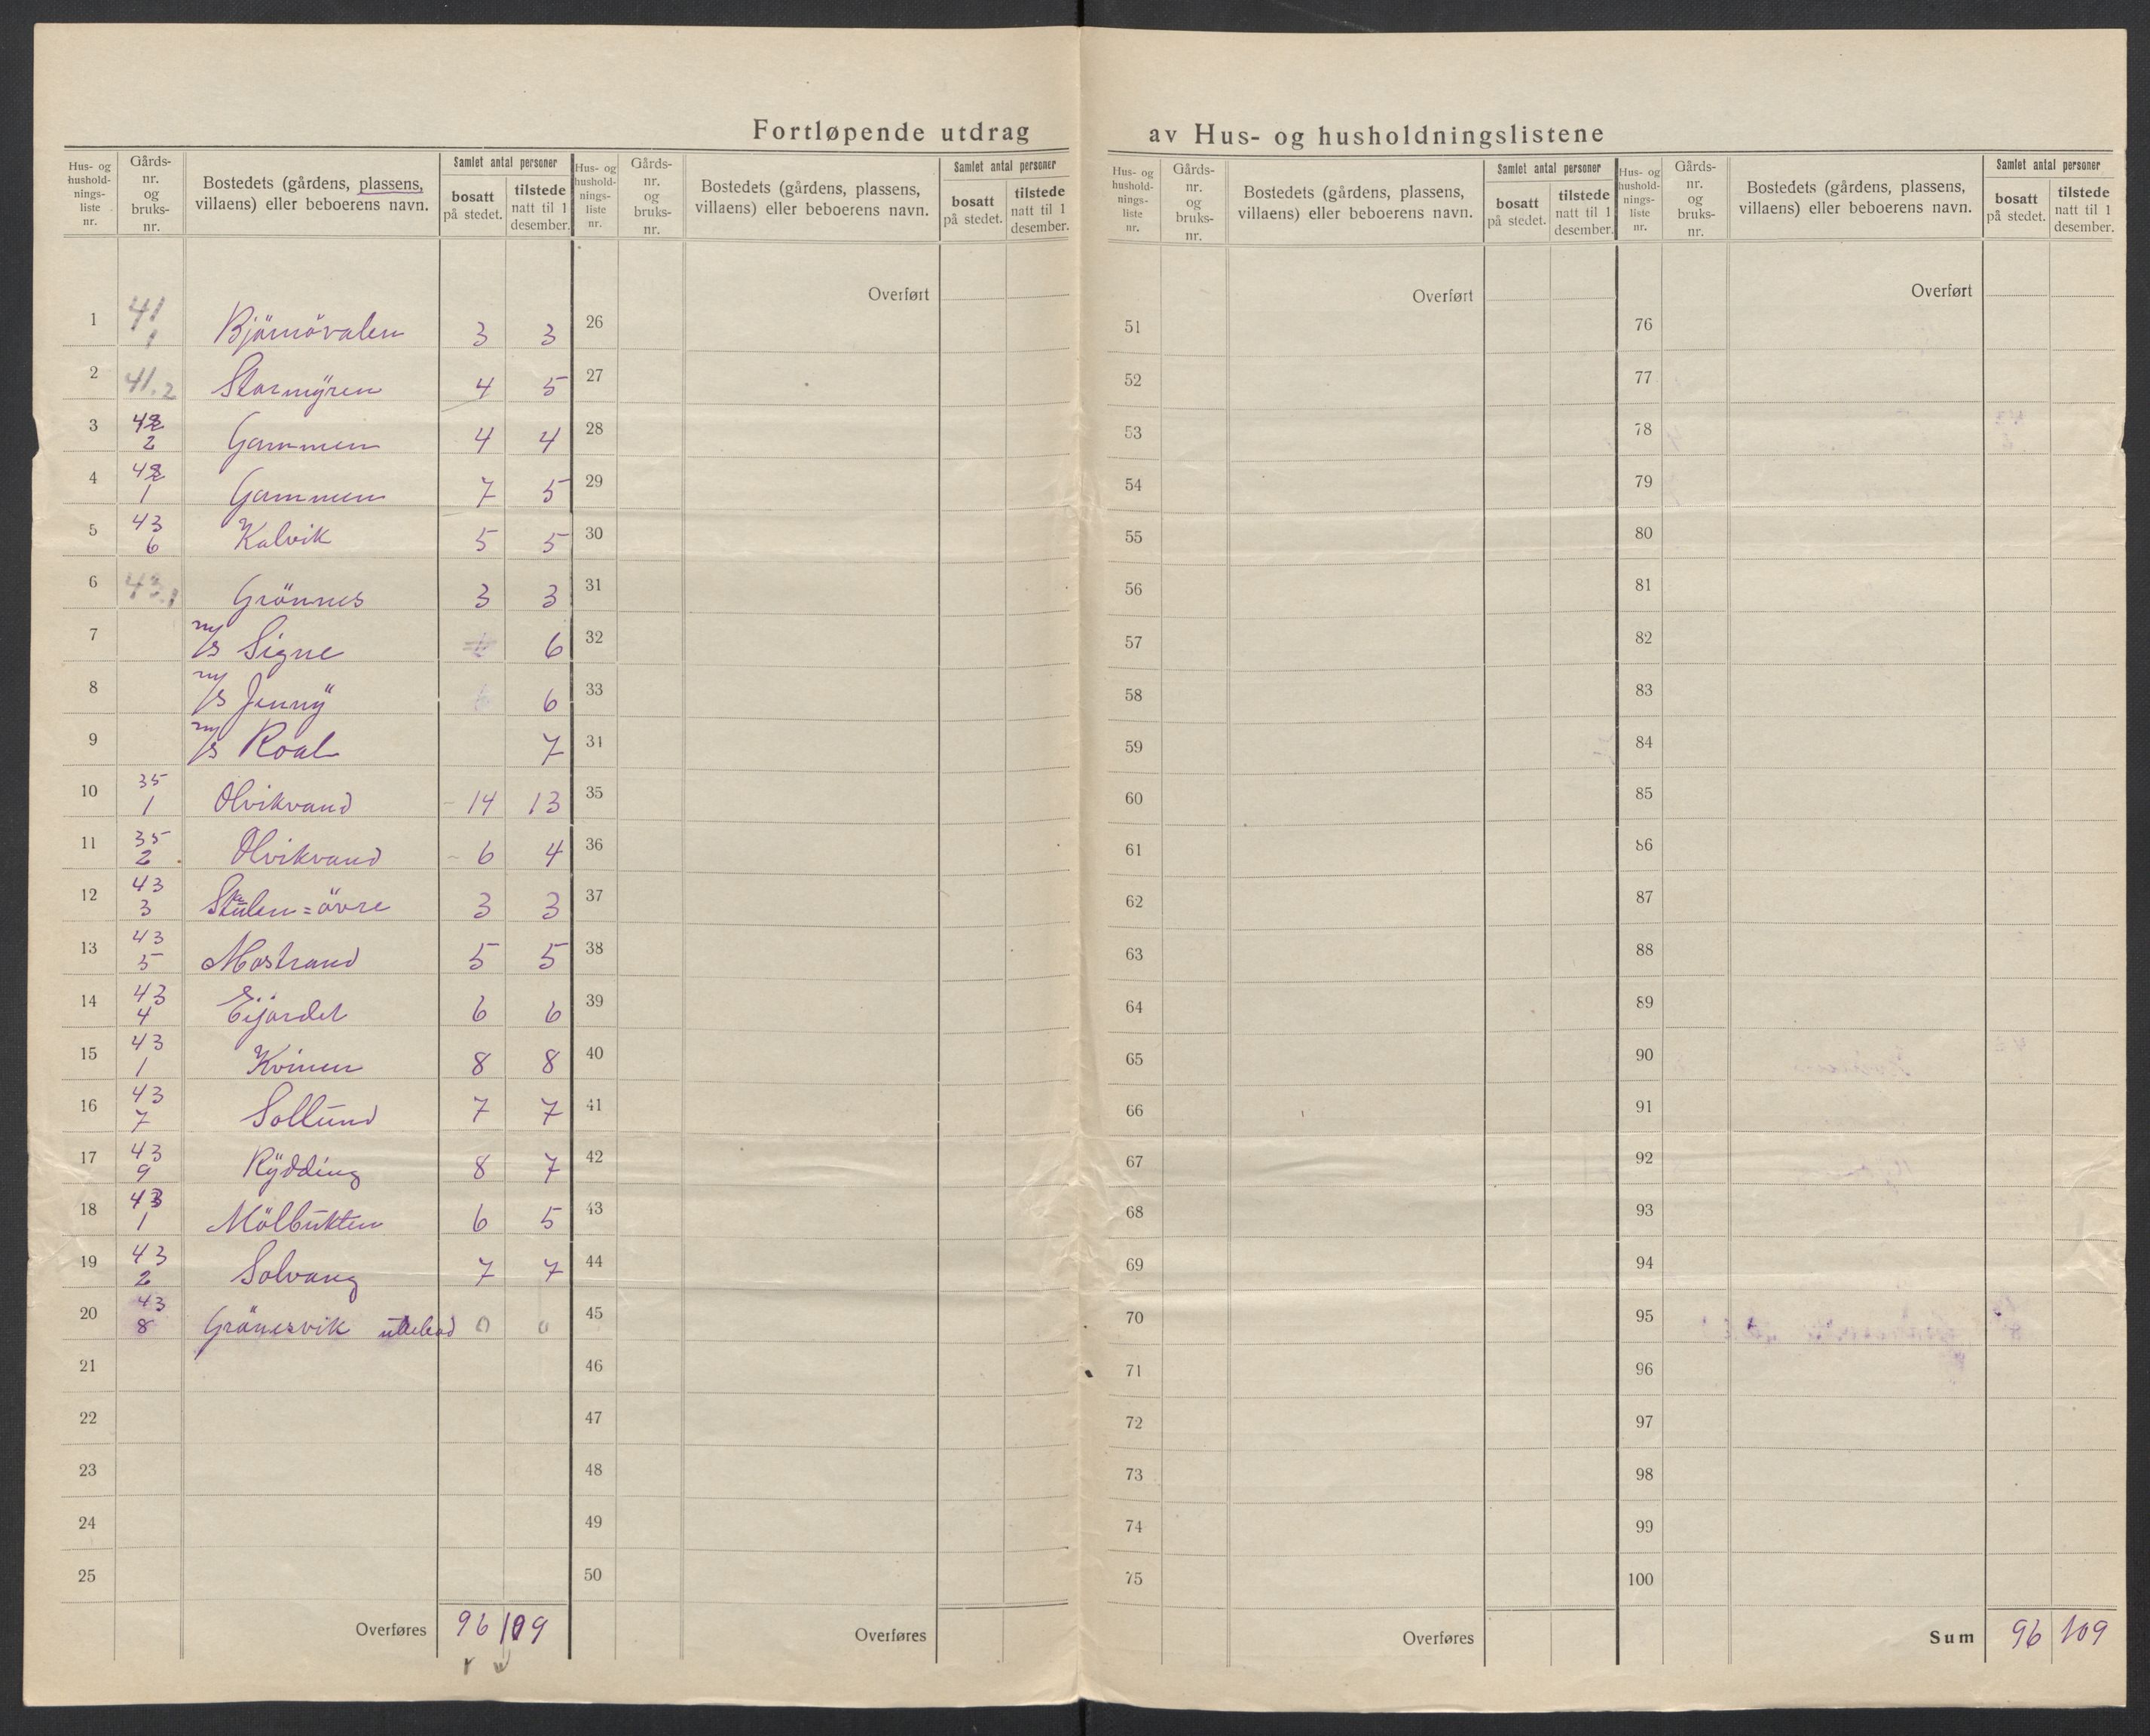 Fortløpende utdrag av Hus- og husholdningslistene
Hus- og hushold-nings-liste nr. Gårds-nr. og bruks-nr. Bostedets (gårdens, plassens, villaens) eller beboerens navn. Samlet antal personer bosatt på stedet. tilstede natt til 1 desember.
1 41 1 Bjørnövalen 3 3
2 41.2 Stormÿren 4 5
3 42 2 Gammen 4 4
4 42 1 Gammen 7 5
5 43 6 Kalvik 5 5
6 43.1 Grönnes 3 3
7 m/s Signe 6
8 m/s Jennÿ 6
9 m/s Roal 7
10 35 1 Olvikvand 14 13
11 35 2 Olvikvand 6 4
12 43 3 Stülen=övre 3 3
13 43 5 Mostrand 5 5
14 43 4 Eijardet 6 6
15 43 1 Kvinen 8 8
16 43 7 Sollund 7 7
17 43 9 Rÿdding 8 7
18 43 1 Mölbukten 6 5
19 43 2 Solvang 7 7
20 43 8 Grönesvik ubebod 0 0
21
22
23
24
25
Overføres 96 109
Hus- og hushold-nings-liste nr. Gårds-nr. og bruks-nr. Bostedets (gårdens, plassens, villaens) eller beboerens navn. Samlet antal personer bosatt på stedet. tilstede natt til 1 desember.
Overført
26
27
28
29
30
31
32
33
31
35
36
37
38
39
40
41
42
43
44
45
46
47
48
49
50
Overføres
Hus- og hushold-nings-liste nr. Gårds-nr. og bruks-nr. Bostedets (gårdens, plassens, villaens) eller beboerens navn. Samlet antal personer bosatt på stedet. tilstede natt til 1 desember.
Overført
51
52
53
54
55
56
57
58
59
60
61
62
63
64
65
66
67
68
69
70
71
72
73
74
75
Overføres
Hus- og hushold-nings-liste nr. Gårds-nr. og bruks-nr. Bostedets (gårdens, plassens, villaens) eller beboerens navn. Samlet antal personer bosatt på stedet. tilstede natt til 1 desember.
Overført
76
77
78
79
80
81
82
83
84
85
86
87
88
89
90
91
92
93
94
95
96
97
98
99
100
Sum 96 109